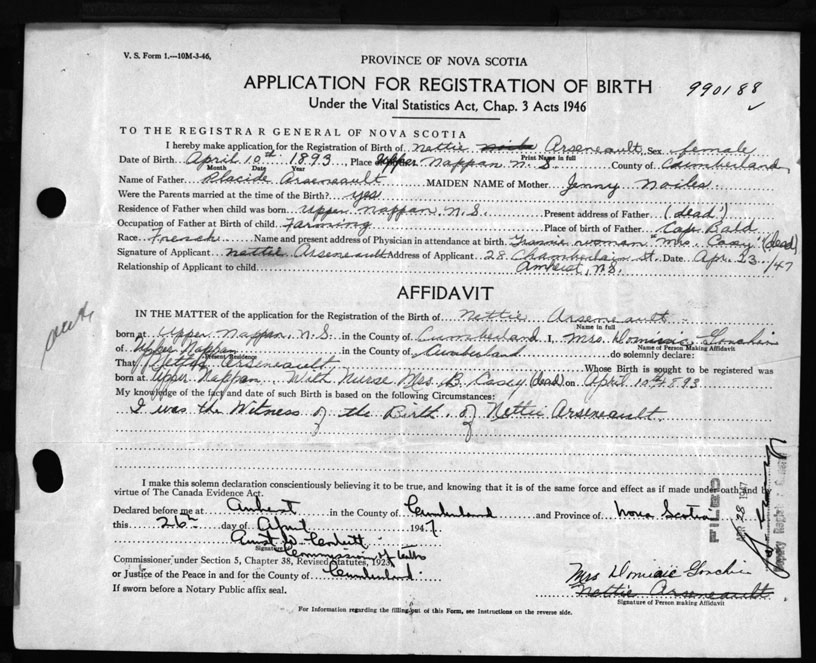 V. S. Form 1.—10M-3-46,
PROVINCE OF NOVA SCOTIA
APPLICATION FOR REGISTRATION OF BIRTH
990188
Under the Vital Statistics Act, Chap. 3 Acts 1946
TO THE REGISTRAR GENERAL OF NOVA SCOTIA
I hereby make application for the Registration of Birth of Nettie Arseneault Sex female
Print Name in full
Date of Birth April 10th 1893 Place Upper Nappan N.S. County of Cumberland
Month Date Year
Name of Father Placide Arseneault MAIDEN NAME of Mother Jenny Noiles
Were the Parents married at the time of the Birth? yes
Residence of Father when child was born Upper Nappan N.S. Present address of Father (dead)
Occupation of Father at Birth of child Farming Place of birth of Father Cap Bald
Race French Name and present address of Physician in attendance at birth woman "Mrs. Casy" (dead)
Signature of Applicant Nettie Arseneault Address of Applicant 28 Chamberlain St. Date Apr. 23/47
Relationship of Applicant to child Amherst, N.S.
AFFIDAVIT
IN THE MATTER of the application for the Registration of Birth of Nettie Arseneault
Name in full
born at Upper Nappan, N.S. in the County of Cumberland I, Mrs Dominic
Name of Person Making Affidavit
of Upper Nappan in the County of Cumberland do solemnly declare:
Present Residence
That Nettie Arseneault Whose Birth is sought to be registered was
born at Upper Nappan With Nurse Mrs. B. Casey (dead) on April 10th 1893
My knowledge of the fact and date of such Birth is based on the following Circumstances:
I was the Witness of the Birth of Nettie Arseneault.
I make this solemn declaration conscientiously believing it to be true, and knowing that it is of the same force and effect as if made under oath and by
virtue of The Canada Evidence Act.
Declared before me at Amherst in the County of Cumberland and Province of Nova Scotia
this 26th day of April 1947.
Signature
Commissioner under Section 5, Chapter 38, Revised Statutes, 1923
or Justice of the Peace in and for the County of Cumberland
If sworn before a Notary Public affix seal.
Mrs Dominic
Nettie Arseneault
Signature of Person making Affidavit
For Information regarding the filling of this Form, see Instructions on the reverse side.
FILED
APR 28 1947